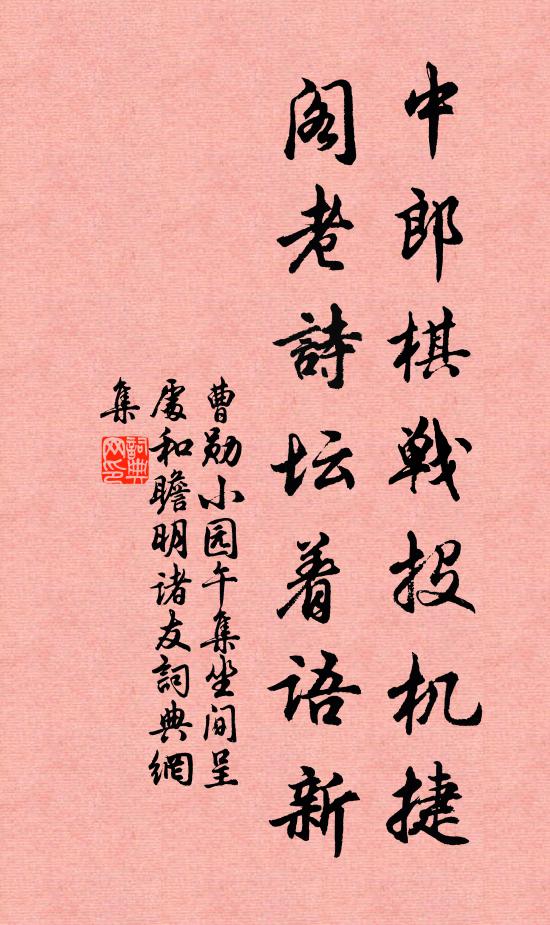 中郎棋戦投机捷
阁老詩坛着语新
曹勋小园午集坐间呈
处和瞻明诸友詞典網
集
詞典網印